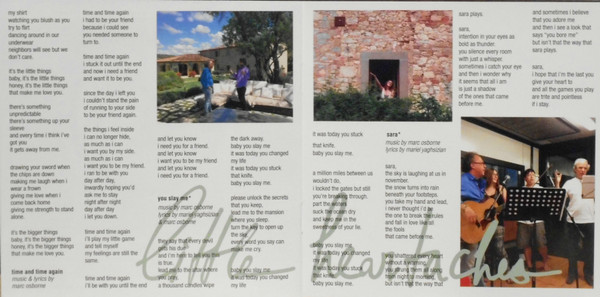 my shirt
watching you blush as you
try to flirt
dancing around in our
underwear
neighbors will see but we
don't care.
it's the little things
baby, it's the little things
honey, it's the little things
that make me love you.
there's something
unpredictable
there's something up your
sleeve
and every time i think i've
got you
it gets away from me.
drawing your sword when
the chips are down
making me laugh when i
wear a frown
giving me love when i
come back home
giving me strength to stand
alone.
it's the bigger things
baby, it's the bigger things
honey, it's the bigger things
that make me love you.
time and time again
music & lyrics by
marc osborne
time and time again
i had to be your friend
because i could see
you needed someone
to turn to.
time and time again
i stuck it out until the end
and now i need a friend
and want it to be you.
since the day i left you
i couldn't stand the pain
of running to your side
to be your friend.
the things i feel inside
i can no longer hide,
as much as i can
i want you by my side.
as much as i can
i want you to be my friend.
i ran to be with you
day after day,
inwardly hoping you'd
ask me to stay
night after night
day after day
i let you down.
time and time again
i'll play my little game
and kill myself
my feelings are still the
same.
time and time again
i'll be with you until the end
and let you know
i need you for a friend.
and let you know
i want you to be my friend
and let you know
i need you for a friend.
you slay me*
music by marc osborne
lyrics by mariel yaghsizian
& marc osborne
they say that every devil
gets his due
and i'm here to tell you this
is true.
lead me to the shore where
you are
a thousand candles wipe
the dark away.
baby you slay me.
it was today you changed
my life
it was today you stuck
that knife.
baby you slay me.
please unlock the secrets
that you keep,
lead me to the mansion
where you sleep.
turn the key to open up
the red
every word you say can
make me cry.
baby you slay me
it was today you changed
my life
it was today you stuck
that knife.
baby you slay me.
a million miles between us
wouldn't do,
i locked the gates but still
you're breaking through.
part the waters
suck the ocean dry
and leave me in the
sweetness of your lie.
baby you slay me
it was today you changed
my life
it was today you stuck
sara*
music by marc osborne
lyrics by mariel yaghsizian
sara,
the sky is laughing at us in
november.
the snow turns into rain
beneath your footsteps,
you take my hand and lead,
i never thought i'd be
the one to break the rules
and fall in love like all
the fools
that came before.
you shattered every heart
without knowing
you strung them along
from night until morning
but isn't that the way that
sara plays.
sara,
intention in your eyes as
bold as thunder
you silence every room
with just a whisper.
sometimes i catch your eye
and then i wonder why
it seems that all i am
is just a shadow
of the ones that came
before me.
and sometimes i believe
that you adore me
and then i see a look that
says "you bore me"
but isn't that the way that
sara plays.
sara,
i hope that i'm the last you
give your heart to
and all the games you play
are trite and pointless
if i stay.
little heartaches